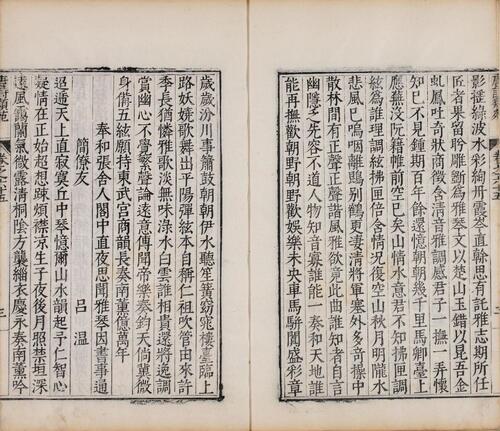 影搖綠波水彩絢丹霞岑直幹思有託雅志期所任
匠者果留眄雕斲為雅琴文以楚山玉錯以昆吾金
虬鳳吐奇狀商徵含清音雅調感君子一撫一弄懷
知己不見鍾期百年餘還憶朝朝幾千里馬卿臺上
應蕪沒阮籍帷前空已矣山情水意君不知拂匣調
絃為誰理調絃拂匣倍含情況復空山秋月明隴水
悲風已嗚咽離鵾別鶴更淒清將軍塞外多奇操中
散林間有正聲正聲諧風雅欲竟此曲誰知者自言
幽隱乏先容不道人物知音寡誰能一奏和天地誰
能再撫歡朝野朝野歡娛樂未央車馬駢闐盛彩章
歲歲汾川事簫鼓朝朝伊水聽笙簧窈窕樓臺臨上
路妖嬈歌舞出平陽彈絃本自稱仁祖吹管由來許
季長猶憐雅歌淡無味淥水白雲誰相貴還將逸詞
賞幽心不覺繁聲論遠意傳聞帝樂奏鈞天倘冀微
身備五絃願持東武宮商韻長奏南薰億萬年
奉和張舍人閣中直夜思聞雅琴因書事通
簡僚友 呂溫
迢遞天上直寂寞丘中琴憶爾山水韻起予仁智心
凝情在正始超想疎煩襟涼生子夜後月照禁垣深
遠風靄蘭氣微露清桐陰方襲緇衣慶永奏南薰吟
三